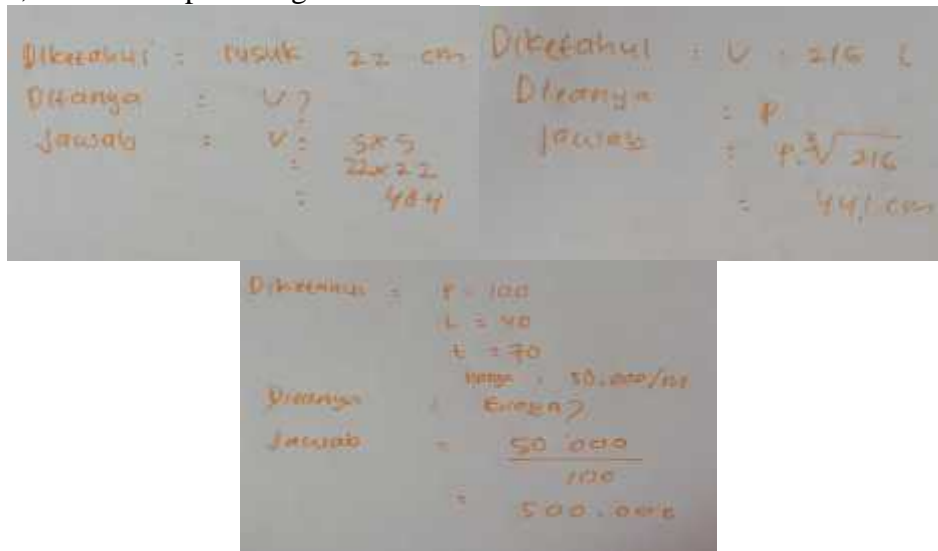 Diketahui : rusuk 22 cm
Ditanya : V?
Jawab : V = 5 x 5
= 22 x 22
= 484
Diketahui : V : 216 L
Ditanya : P
Jawab : P. ∛216
= 441 cm
Diketahui : P = 100
L = 40
t = 70
Harga : 50.000/m
Ditanya :
Jawab = 50 000
100
= 500.000